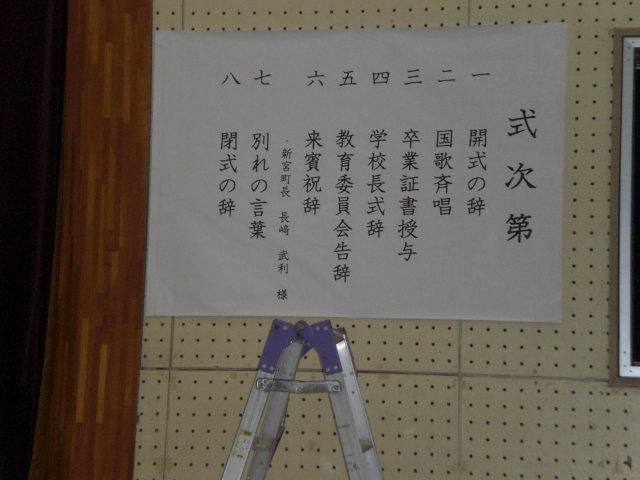 式次第
一 開式の辞
二 国歌斉唱
三 卒業証書授与
四 学校長式辞
五 教育委員会告辞
六 来賓祝辞
・新宮町長 長﨑 武利 様
七 別れの言葉
八 閉式の辞